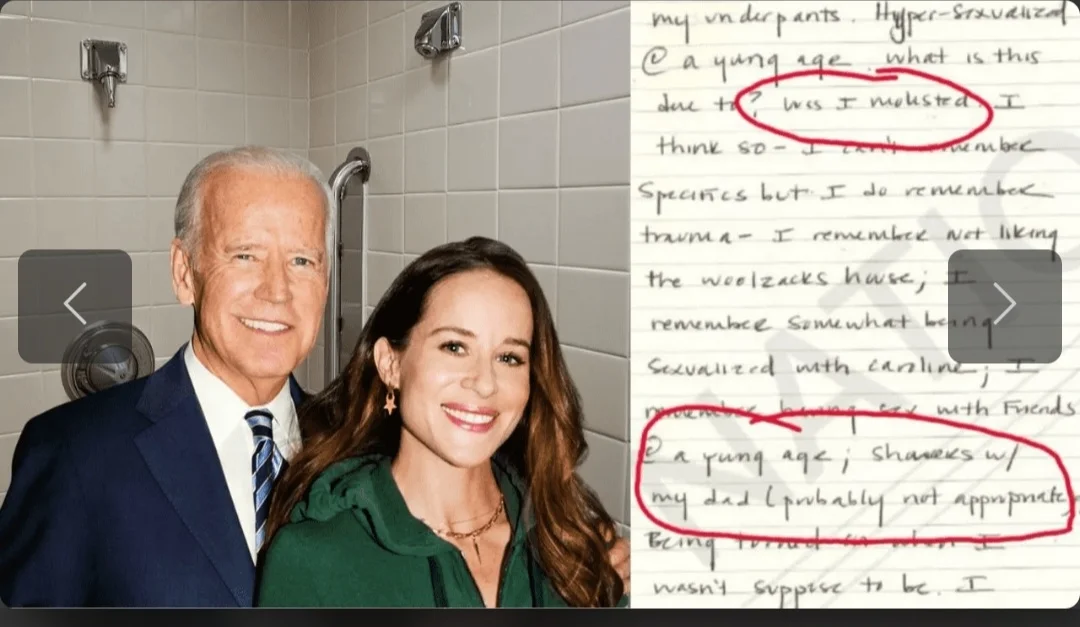 my underpants. Hyper-Sexualized
@ a yung age. what is this
due to? Was I molested. I
think so - I can't remember
Specifics but I do remember
trauma - I remember not liking
the woolzacks house; I
remember somewhat being
Sexualized with caroline; I
remember having sex with Friends
@ a yung age; showers w/
my dad (probably not appropriate
Being turned on when I
wasn't suppose to be. I